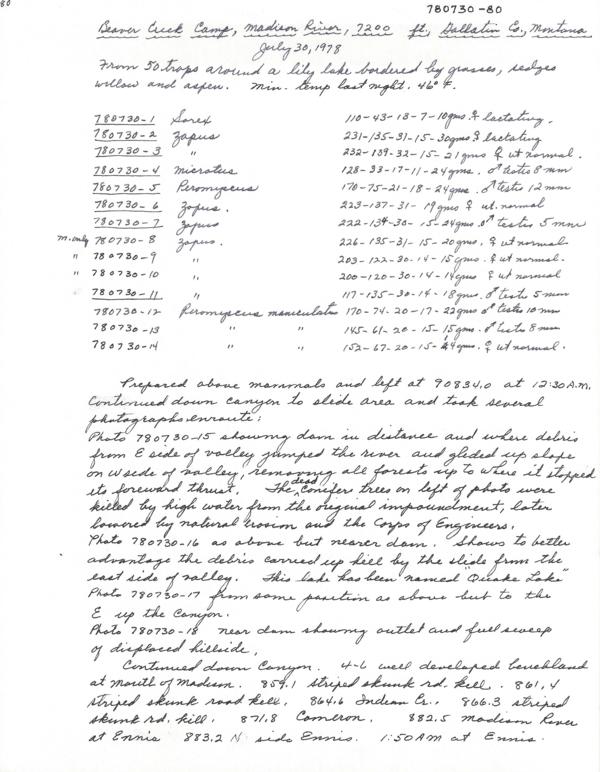 80
780730-80
Beaver Creek Camp, Madison River, 7200 ft, Gallatin Co., Montana
July 30, 1978
From 50 traps around a lily lake bordered by grasses, sedges
willow and aspen. Min. temp last night. 46° F.
780730-1 Sorex 110-43-13-7-10gms ♀ lactating.
780730-2 Zapus 231-135-31-15-30gms ♀ lactating
780730-3 " 232-139-32-15-21gms ♀ ut normal.
780730-4 Microtus 128-33-17-11-24gms. ♂ testes 8 mm
780730-5 Peromyscus 170-75-21-18-24gms. ♂ testes 12 mm
780730-6 Zapus. 223-137-31- 19gms ♀ ut. normal
780730-7 Zapus 222-134-30- 15-24gms ♂ testes 5 mm
m. only 780730-8 Zapus. 226-135-31- 15-20gms. ♀ ut normal.
" 780730-9 " 203-122-30-14-15gms. ♀ ut normal.
" 780730-10 " 200-120-30-14-14gms ♀ ut normal
780730-11 " 117-135-30-14-18gms. ♂ testes 5mm
780730-12 Peromyscus maniculatus 170-74-20-17-22gms ♂ testes 10 mm
780730-13 " " 145-61-20-15-15gms. ♂ testes 8 mm
780730-14 " " 152-67-20-15- gms. ♀ ut normal.
Prepared above mammals and left at 90834.0 at 12:30 A.M.
Continued down canyon to slide area and took several
photographs enroute:
Photo 780730-15 showing dam in distance and where debris
from E side of valley jumped the river and glided up slope
on W side of valley, removing all forests up to where it stopped
its foreward thrust. The dead conifer trees on left of photo were
killed by high water from the original impoundment, later
lowered by natural erosion and the Corps of Engineers.
Photo 780730-16 as above but nearer dam. Shows to better
advantage the debris carried up hill by the slide from the
east side of valley. This lake has been named "Quake Lake"
Photo 780730-17 from same position as above but to the
E up the Canyon.
Photo 780730-18 near dam showing outlet and full sweep
of displaced hillside.
Continued down Canyon. 4-6 well developed benchland
at mouth of Madison. 859.1 striped skunk rd. kill. 861.4
striped skunk road kill. 864.6 Indian Cr., 866.3 striped
skunk rd. kill. 871.8 Cameron. 882.5 Madison River
at Ennis 883.2 N side Ennis. 1:50 AM at Ennis.